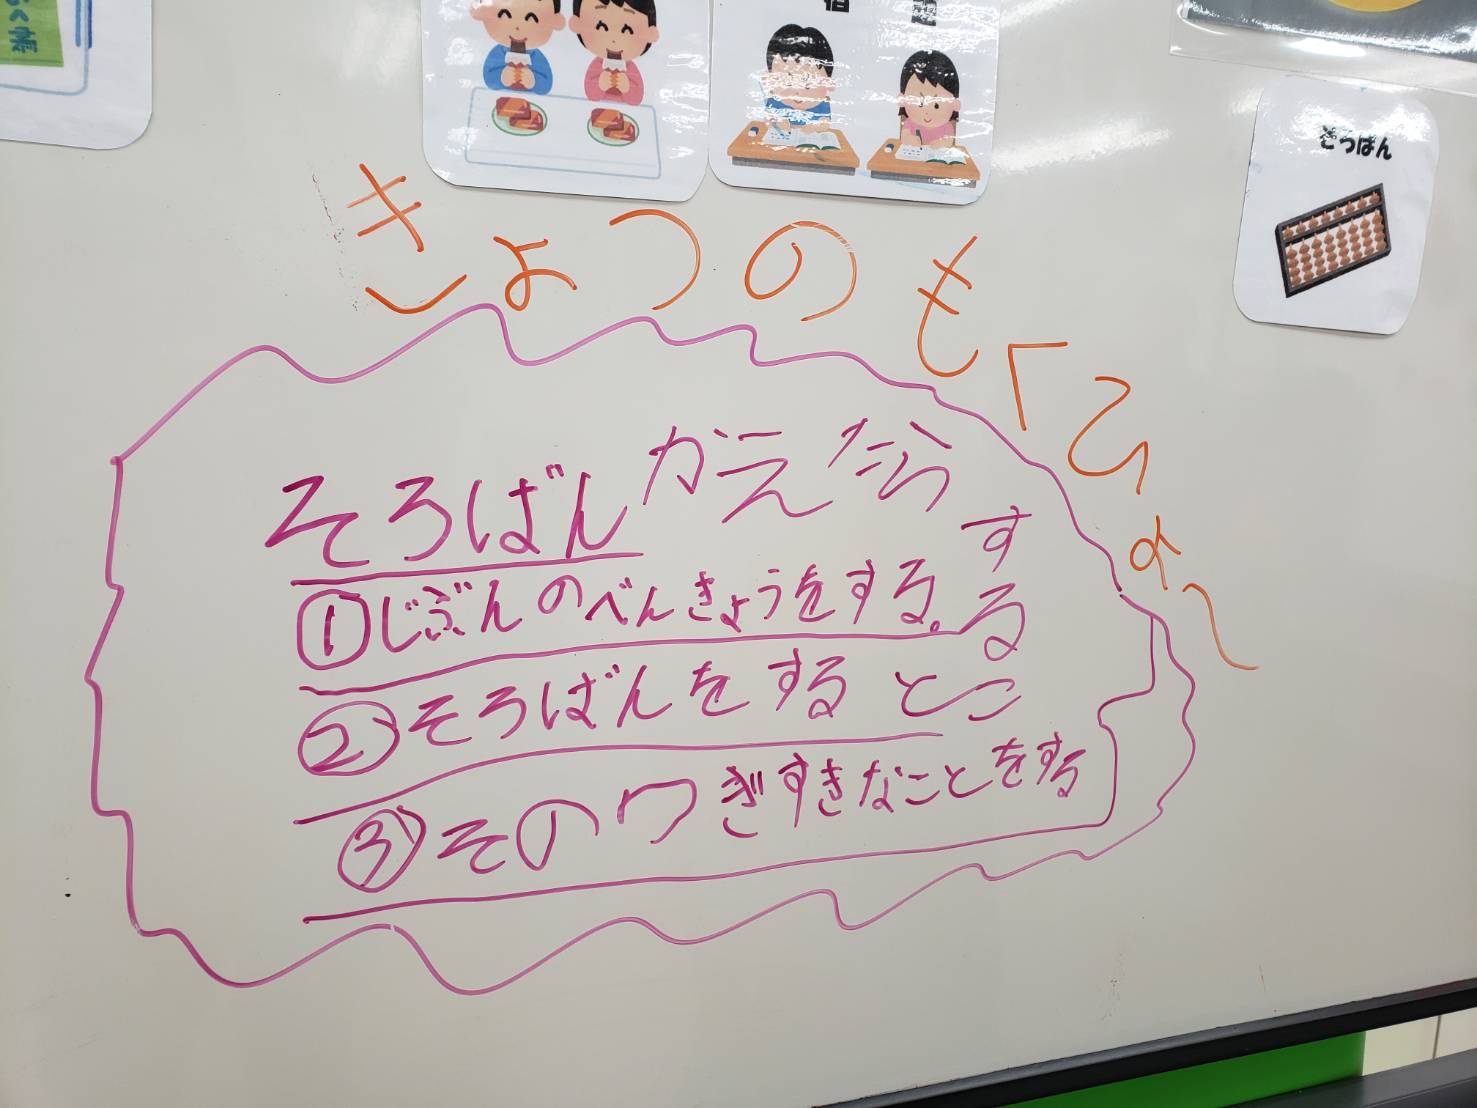 そろばん
きょつのもくひょつ
そろばんかえたらすること
①じぶんのべんきょうをする。
②そろばんをする
③そのつぎすきなことをする